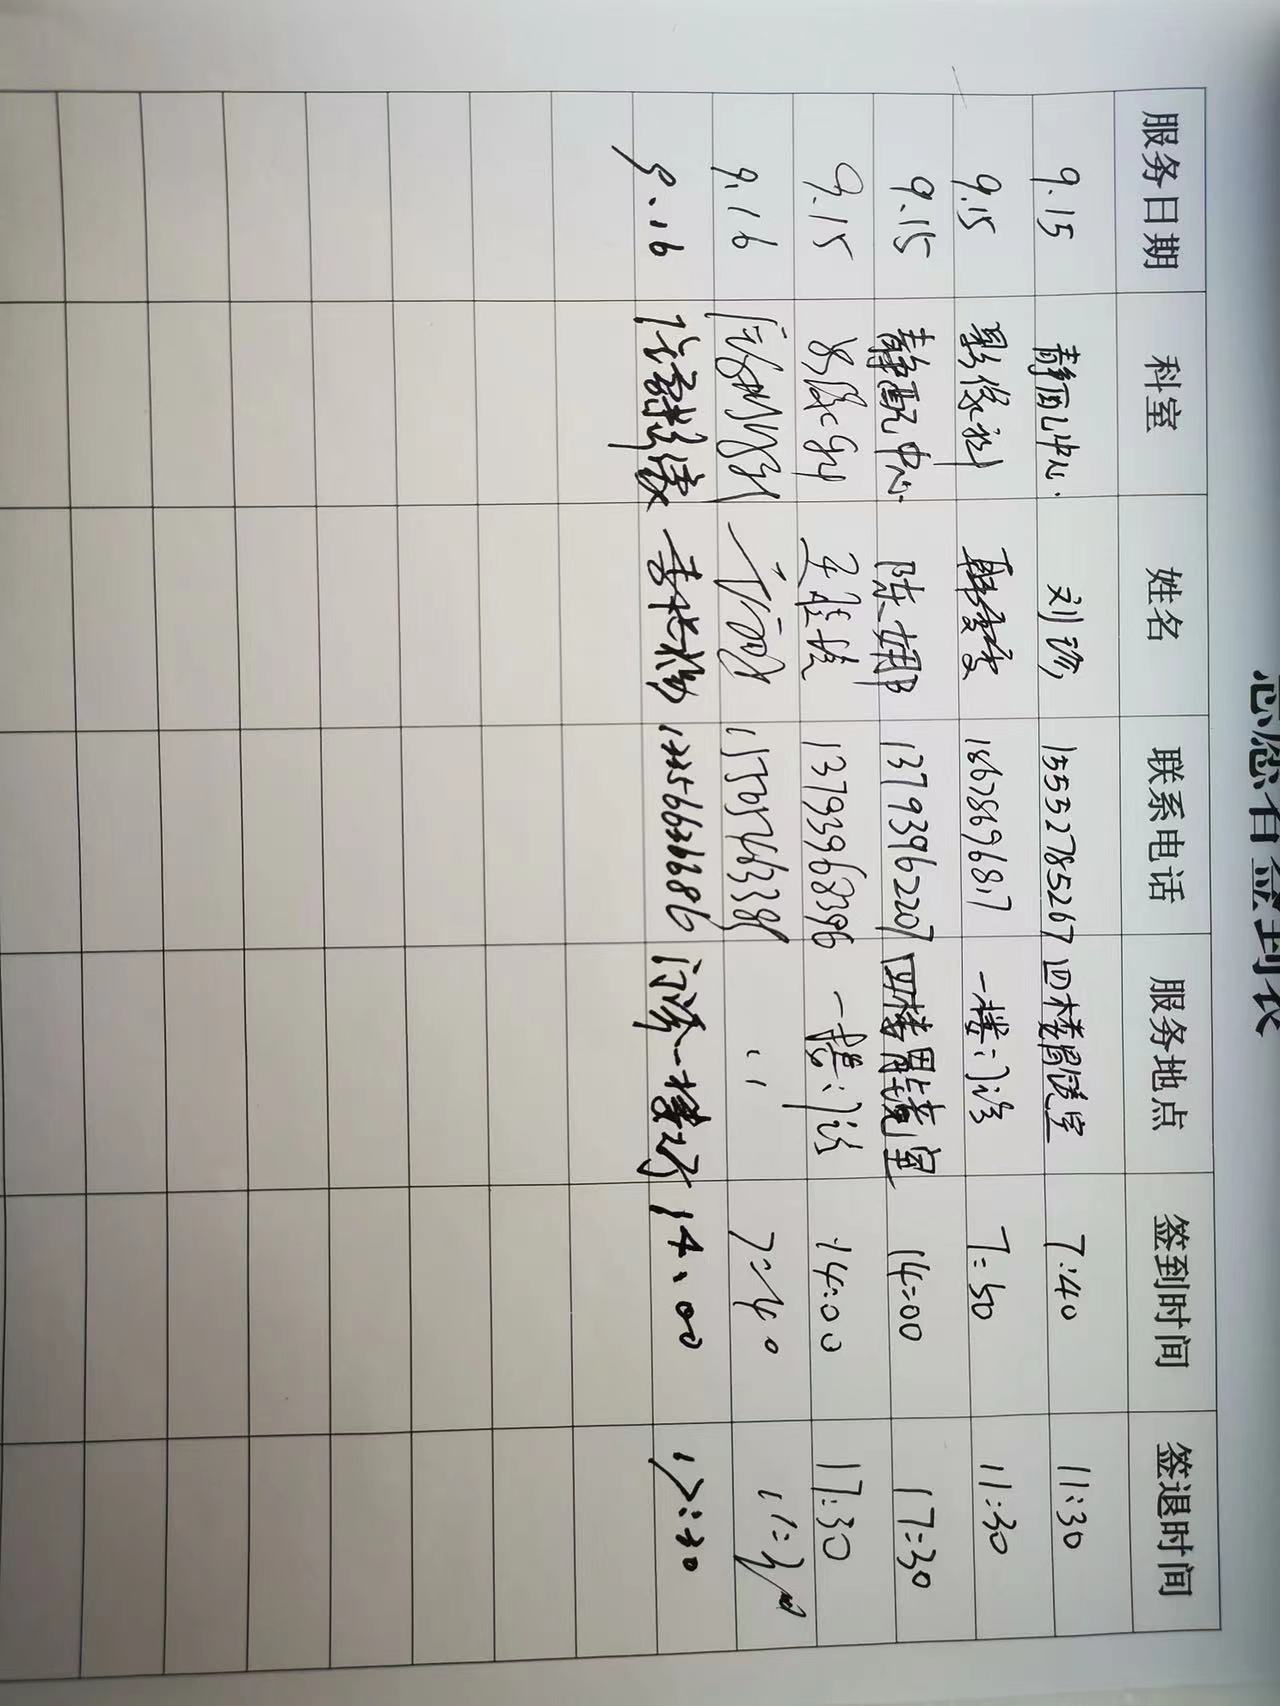 志愿者签到表
服务日期 科室 姓名 联系电话 服务地点 签到时间 签退时间
9.15 静配中心 刘珍 15552785267 四楼胃镜室 7:40 11:30
9.15 影像科 18678696817 一楼门诊 7:50 11:30
9.15 静配中心 陈娜 13793962207 四楼胃镜室 14:00 17:30
9.15 13793968396 一楼门诊 14:00 17:30
9.16 7:40 11:30
9.16 门诊一楼大厅 14:00 17:30